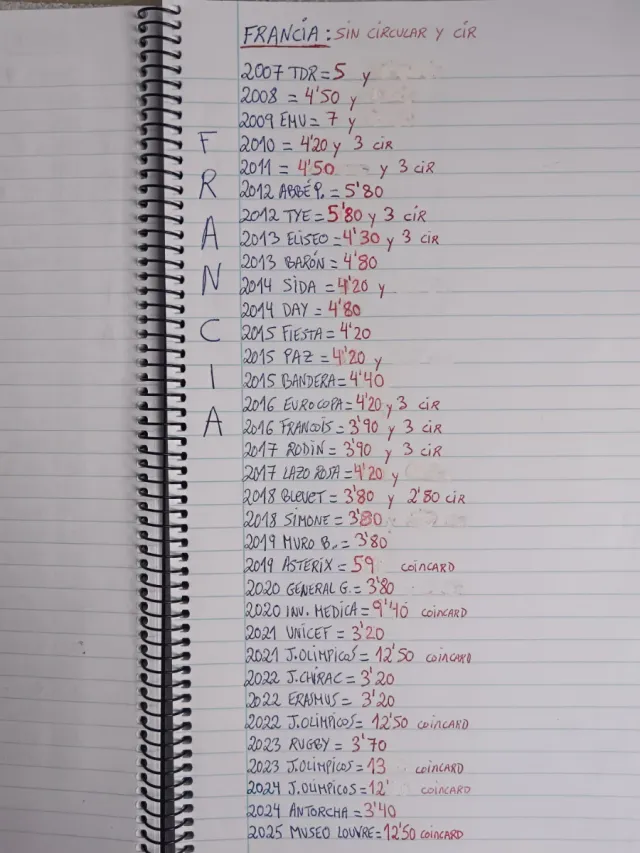 FRANCIA: SIN CIRCULAR Y CIR
2007 TDR = 5 y
2008 = 4'50 y
2009 EMU = 7 y
2010 = 4'20 y 3 CIR
2011 = 4'50 y 3 CIR
2012 ABBÉ P. = 5'80
2012 TYE = 5'80 y 3 CIR
2013 ELISEO = 4'30 y 3 CIR
2013 BARÓN = 4'80
2014 SIDA = 4'20 y
2014 DAY = 4'80
2015 FIESTA = 4'20
2015 PAZ = 4'20 y
2015 BANDERA = 4'40
2016 EUROCOPA = 4'20 y 3 CIR
2016 FRANCOIS = 3'90 y 3 CIR
2017 RODIN = 3'90 y 3 CIR
2017 LAZO ROSA = 4'20 y
2018 BLEUET = 3'80 y 2'80 CIR
2018 SIMONE = 3'80
2019 MURO B. = 3'80
2019 ASTERIX = 59 COINCARD
2020 GENERAL G. = 3'80
2020 INV. MEDICA = 9'40 COINCARD
2021 UNICEF = 3'20
2021 J.OLIMPICOS = 12'50 COINCARD
2022 J.CHIRAC = 3'20
2022 ERASMUS = 3'20
2022 J.OLIMPICOS = 12'50 COINCARD
2023 RUGBY = 3'70
2023 J.OLIMPICOS = 13 COINCARD
2024 J.OLIMPICOS = 12' COINCARD
2024 ANTORCHA = 3'40
2025 MUSEO LOUVRE = 12'50 COINCARD
FRANCIA